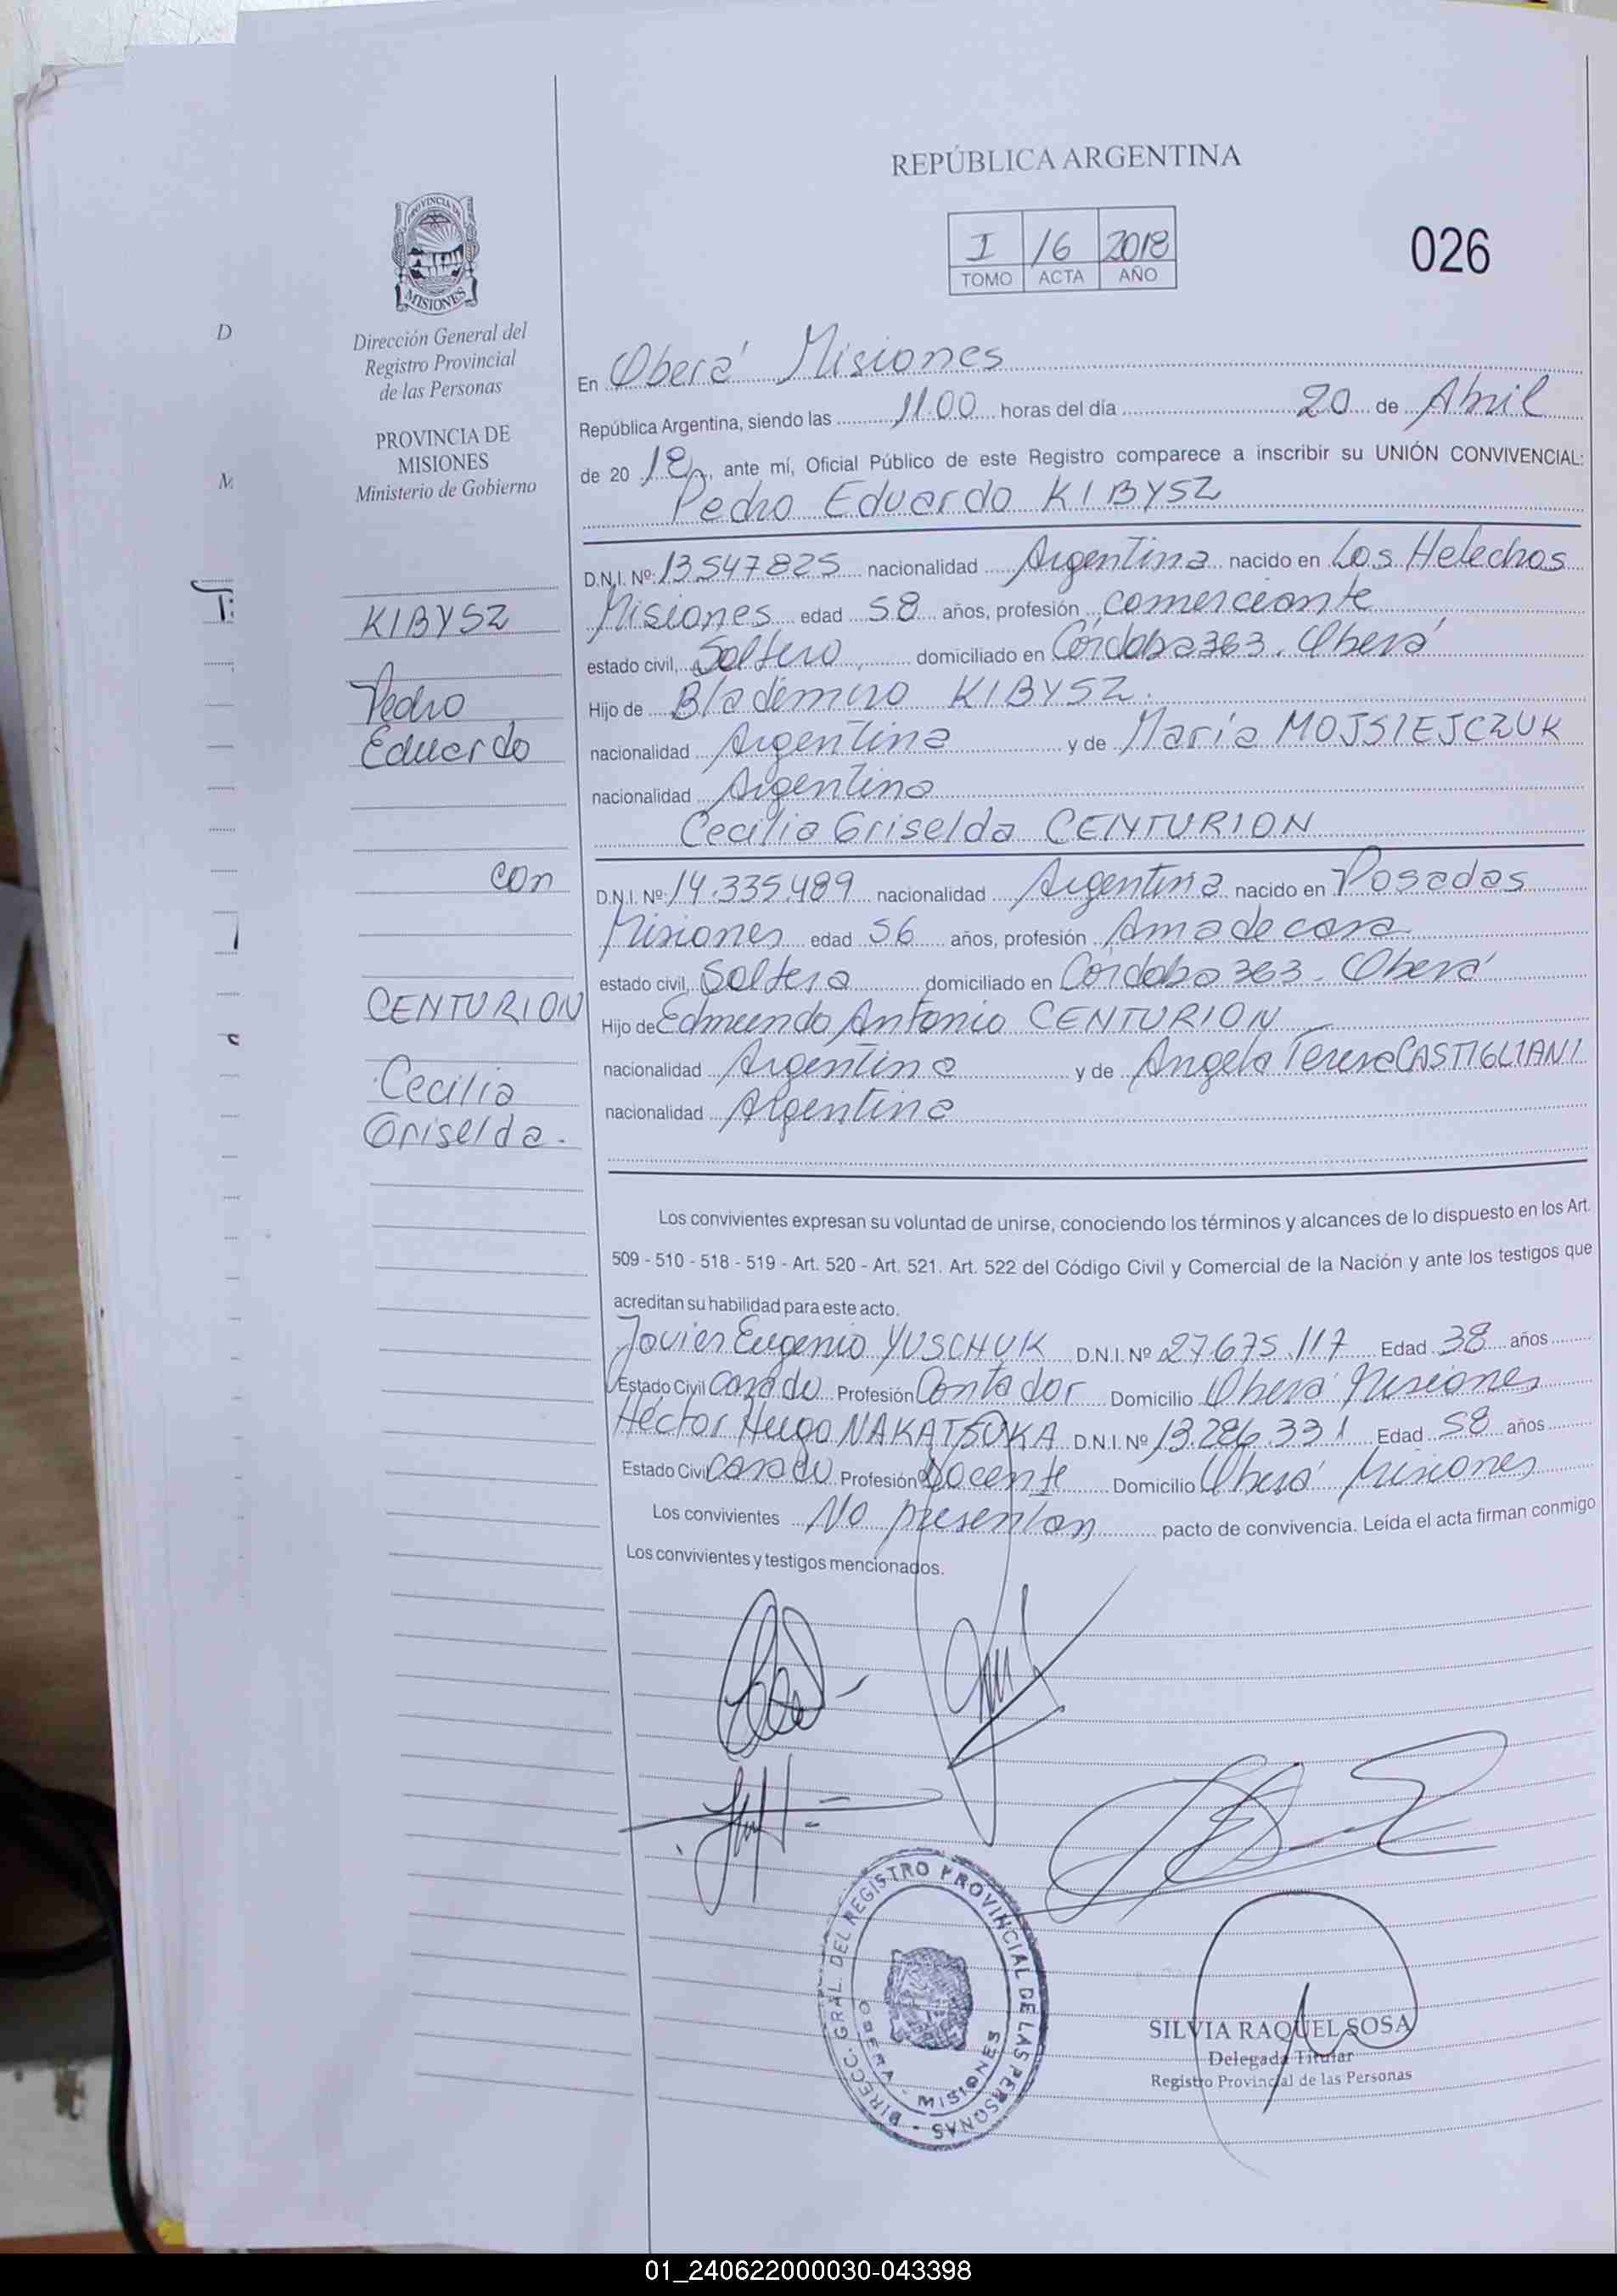 REPÚBLICA ARGENTINA
I 16 2018
TOMO ACTA AÑO
026
PROVINCIA DE
MISIONES
Dirección General del
Registro Provincial
de las Personas
PROVINCIA DE
MISIONES
Ministerio de Gobierno
KIBYSZ
Pedro
Eduardo
con
CENTURION
Cecilia
Griselda.
En Oberá Misiones
República Argentina, siendo las 11.00 horas del día 20 de Abril
de 20 18, ante mí, Oficial Público de este Registro comparece a inscribir su UNIÓN CONVIVENCIAL:
Pedro Eduardo KIBYSZ
D.N.I. Nº: 13547825 nacionalidad Argentina nacido en Los Helechos
Misiones edad 58 años, profesión comerciante
estado civil, Soltero, domiciliado en Córdoba 363. Oberá
Hijo de Blademiro KIBYSZ.
nacionalidad Argentina y de María MOJSIEJCZUK
nacionalidad Argentina
Cecilia Griselda CENTURION
D.N.I. Nº: 14.335.489 nacionalidad Argentina nacido en Posadas
Misiones edad 56 años, profesión Ama de casa
estado civil, Soltera domiciliado en Córdoba 363 - Oberá
Hijo de Edmundo Antonio CENTURION
nacionalidad Argentina y de Angela Teresa CASTIGLIANI
nacionalidad Argentina
Los convivientes expresan su voluntad de unirse, conociendo los términos y alcances de lo dispuesto en los Art.
509 - 510 - 518 - 519 - Art. 520 - Art. 521. Art. 522 del Código Civil y Comercial de la Nación y ante los testigos que
acreditan su habilidad para este acto.
Javier Eugenio YUSCHUK D.N.I. Nº 27.675.117 Edad 38 años
Estado Civil Casado Profesión Contador Domicilio Oberá Misiones
Héctor Hugo NAKATSUKA D.N.I. Nº 13.286.331 Edad 58 años
Estado Civil Casado Profesión Docente Domicilio Oberá Misiones
Los convivientes No presentan pacto de convivencia. Leída el acta firman conmigo
Los convivientes y testigos mencionados.
DIRECC. GRAL. DEL REGISTRO PROVINCIAL DE LAS PERSONAS -
OBERA - MISIONES
SILVIA RAQUEL SOSA
Delegada Titular
Registro Provincial de las Personas
01_240622000030-043398